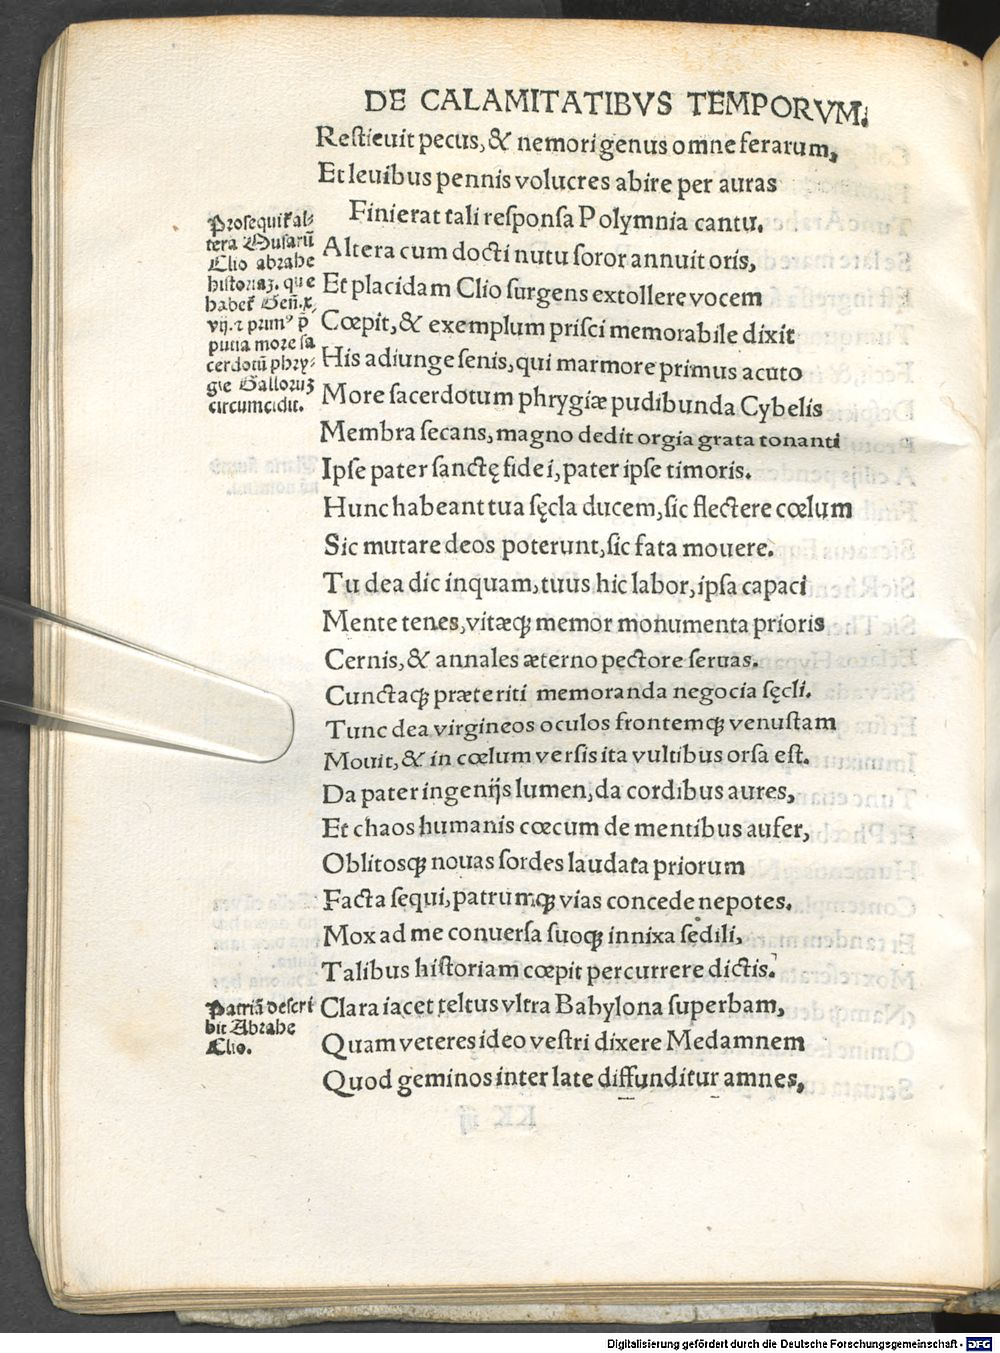 DE CALAMITATIBVS TEMPORVM.
Restieuit pecus, & nemori genus omne ferarum,
Et leuibus pennis volucres abire per auras
Finierat tali responsa Polymnia cantu.
Altera cum docti nutu soror annuit oris,
Et placidam Clio surgens extollere vocem
Cœpit, & exemplum prisci memorabile dixit
His adiunge senis, qui marmore primus acuto
More sacerdotum phrygiæ pudibunda Cybelis
Membra secans, magno dedit orgia grata tonanti
Ipse pater sanctę fidei, pater ipse timoris.
Hunc habeant tua sęcla ducem, sic flectere cœlum
Sic mutare deos poterunt, sic fata mouere.
Tu dea dic inquam, tuus hic labor, ipsa capaci
Mente tenes, vitæqꝫ memor monumenta prioris
Cernis, & annales æterno pectore seruas.
Cunctaqꝫ præteriti memoranda negocia sęcli.
Tunc dea virgineos oculos frontemqꝫ venustam
Mouit, & in cœlum versis ita vultibus orsa est.
Da pater ingenijs lumen, da cordibus aures,
Et chaos humanis cœcum de mentibus aufer,
Oblitosqꝫ nouas sordes laudata priorum
Facta sequi, patrumqꝫ vias concede nepotes.
Mox ad me conuersa suoqꝫ innixa sedili,
Talibus historiam cœpit percurrere dictis.
Clara iacet teltus vltra Babylona superbam,
Quam veteres ideo vestri dixere Medamnem
Quod geminos inter late diffunditur amnes,
Prosequit̃ al-
tera Musarũ
Clio abrahe
historiaꝫ. que
habet̃ Geñ.x.
vij. ⁊ primꝰ p̃
putia more sa
cerdotũ phry-
gie Galloruꝫ
circumcidit.
Patriã descri
bit Abrahe
Clio.
Digitalisierung gefördert durch die Deutsche Forschungsgemeinschaft - DFG